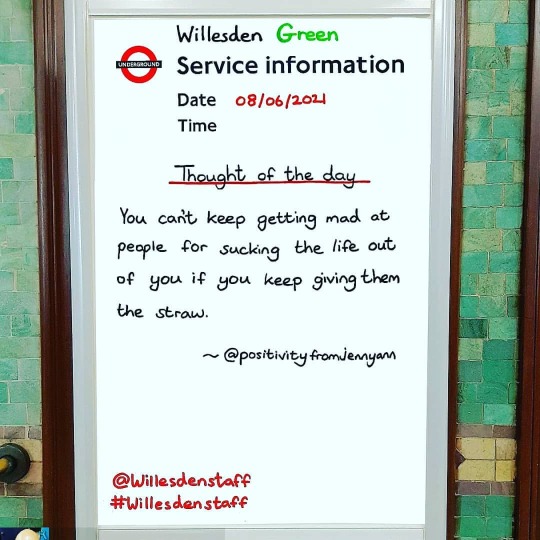 Willesden Green
UNDERGROUND
Service information
Date 08/06/2021
Time
Thought of the day
You can't keep getting mad at
people for sucking the life out
of you if you keep giving them
the straw.
~ @positivityfromjennyann
@Willesdenstaff
#Willesdenstaff